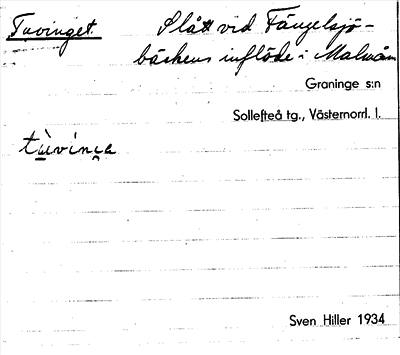 Tuvinget. Slått vid Fängelsjö-
bäckens inflöde i Malmån
Graninge s:n
Sollefteå tg., Västernorrl. l.
tùvinça
Sven Hiller 1934